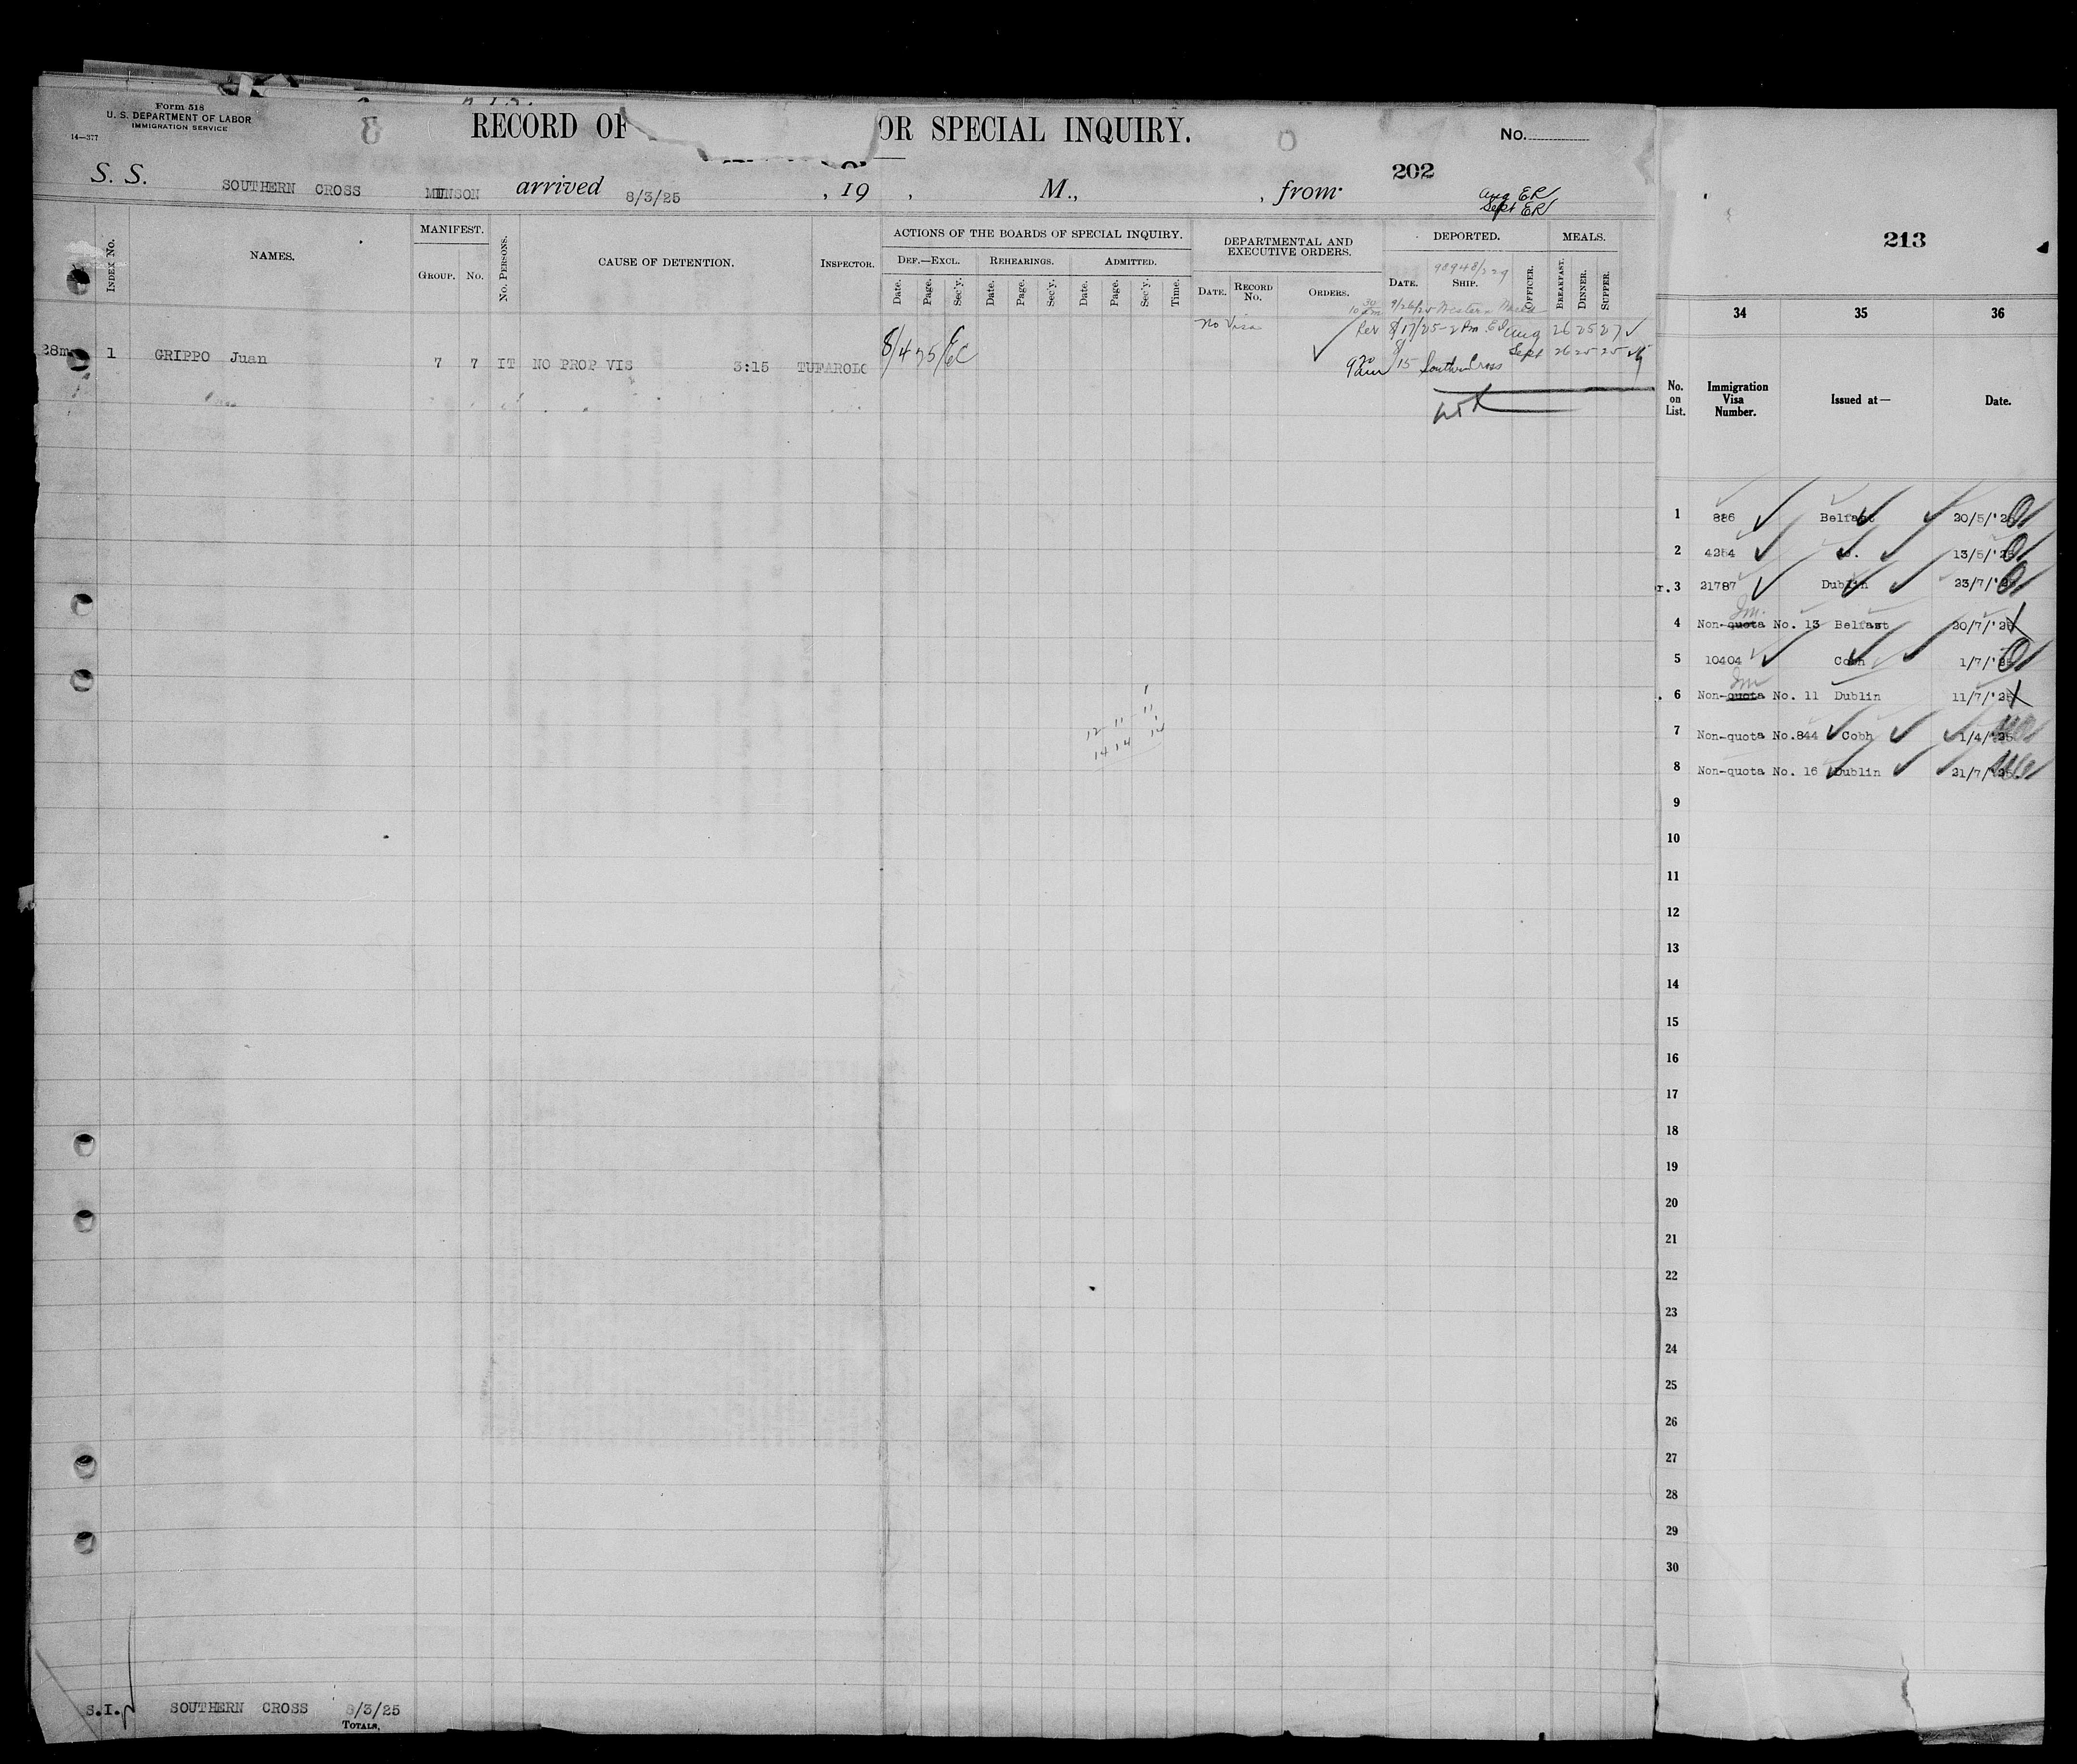 Form 518
U. S. DEPARTMENT OF LABOR
IMMIGRATION SERVICE
14—377
RECORD OF OR SPECIAL INQUIRY.
No.
202
S. S. SOUTHERN CROSS MUNSON arrived 8/3/25 , 19 , M., , from
Aug ER
Sept ER
INDEX No.
NAMES.
MANIFEST.
GROUP. No.
No. PERSONS.
CAUSE OF DETENTION.
INSPECTOR.
ACTIONS OF THE BOARDS OF SPECIAL INQUIRY.
DEF.—EXCL. REHEARINGS. ADMITTED.
Date. Page. Sec'y. Date. Page. Sec'y. Date. Page. Sec'y. Time.
DEPARTMENTAL AND EXECUTIVE ORDERS.
DATE. RECORD No. ORDERS.
DEPORTED.
98948/229
DATE. SHIP. OFFICER.
MEALS.
BREAKFAST. DINNER. SUPPER.
10 30 am 9/26/25 Western World
No Visa Rev 8/17/25 - 2 Pm Aug 26 25 27
Sept 26 25 25
28m 1 GRIPPO Juan 7 7 IT NO PROP VIS 3:15 TUFAROLO 8/4 25 EC
9 20 am /15 Southern Cross
12 11 11
14 14 14
S.I. SOUTHERN CROSS 8/3/25
TOTALS,
213
34 35 36
No. on List. Immigration Visa Number. Issued at— Date.
1 886 Belfast 20/5/'25
2 4254 D. 13/5/'25
r. 3 21787 Dublin 23/7/'25
4 Non-quota No. 13 Belfast 20/7/'25
5 10404 Cobh 1/7/'25
. 6 Non-quota No. 11 Dublin 11/7/'25
7 Non-quota No.844 Cobh 1/4/'25
8 Non-quota No. 16 Dublin 21/7/'25.
9
10
11
12
13
14
15
16
17
18
19
20
21
22
23
24
25
26
27
28
29
30